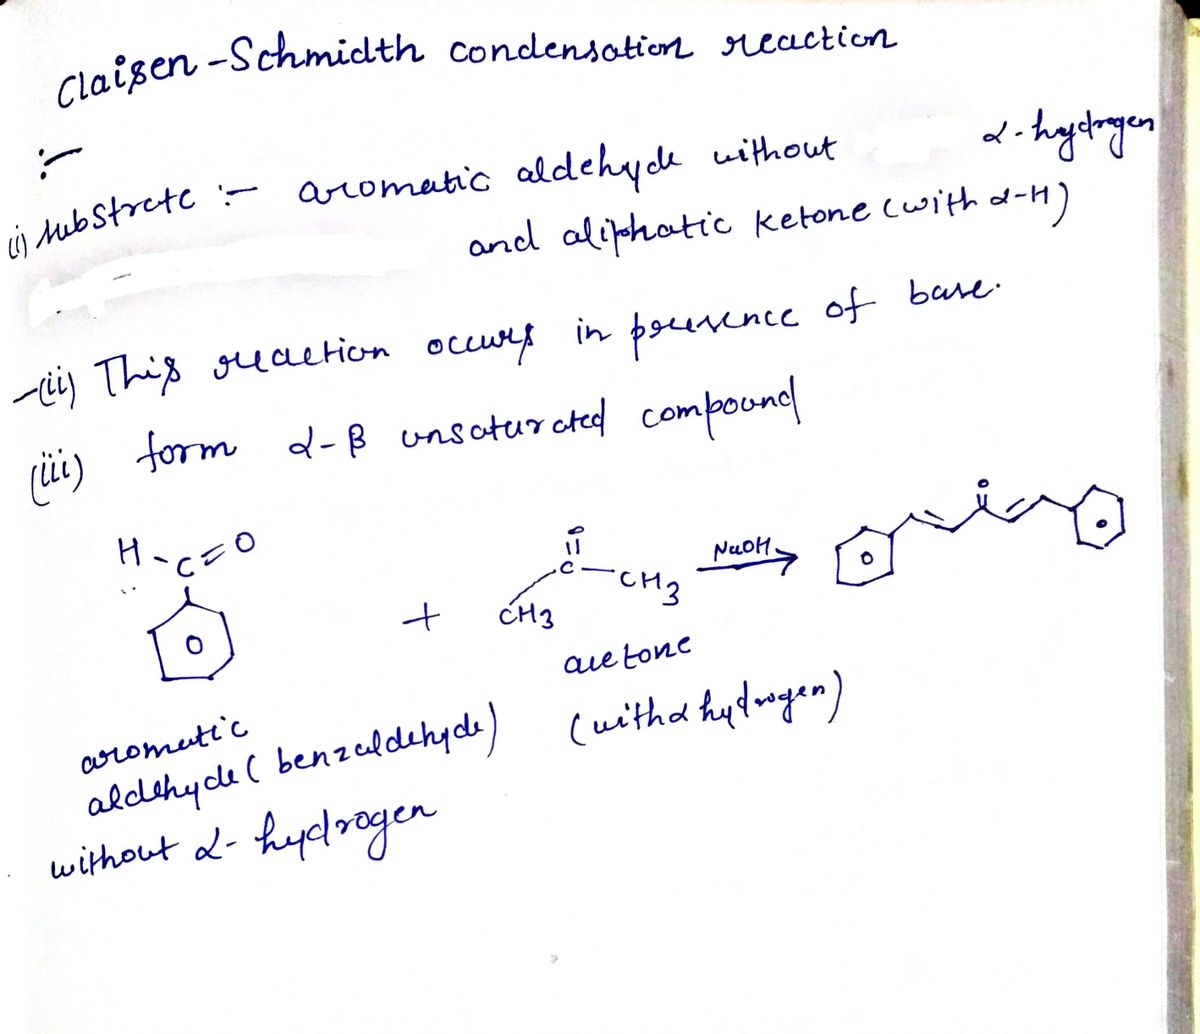 Claisen-Schmidth condensation reaction
:-
(i) substrate :- aromatic aldehyde without α-hydrogen
and aliphatic ketone (with α-H)
-(ii) This reaction occurs in presence of base.
(iii) form α-β unsaturated compound
H-C=O
O
C-CH3
CH3
+
NaOH
O
acetone
(with α hydrogen)
aromatic
aldehyde (benzaldehyde)
without α-hydrogen